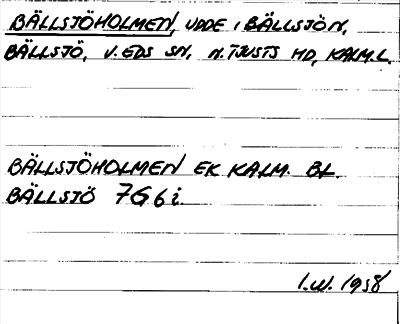 BÄLLSJÖHOLMEN, UDDE I BÄLLSJÖN,
BÄLLSJÖ, V. EDS SN, N. TJUSTS HD, KALM.L.
BÄLLSJÖHOLMEN EK KALM. BL.
BÄLLSJÖ 7G6i
I.W. 1958